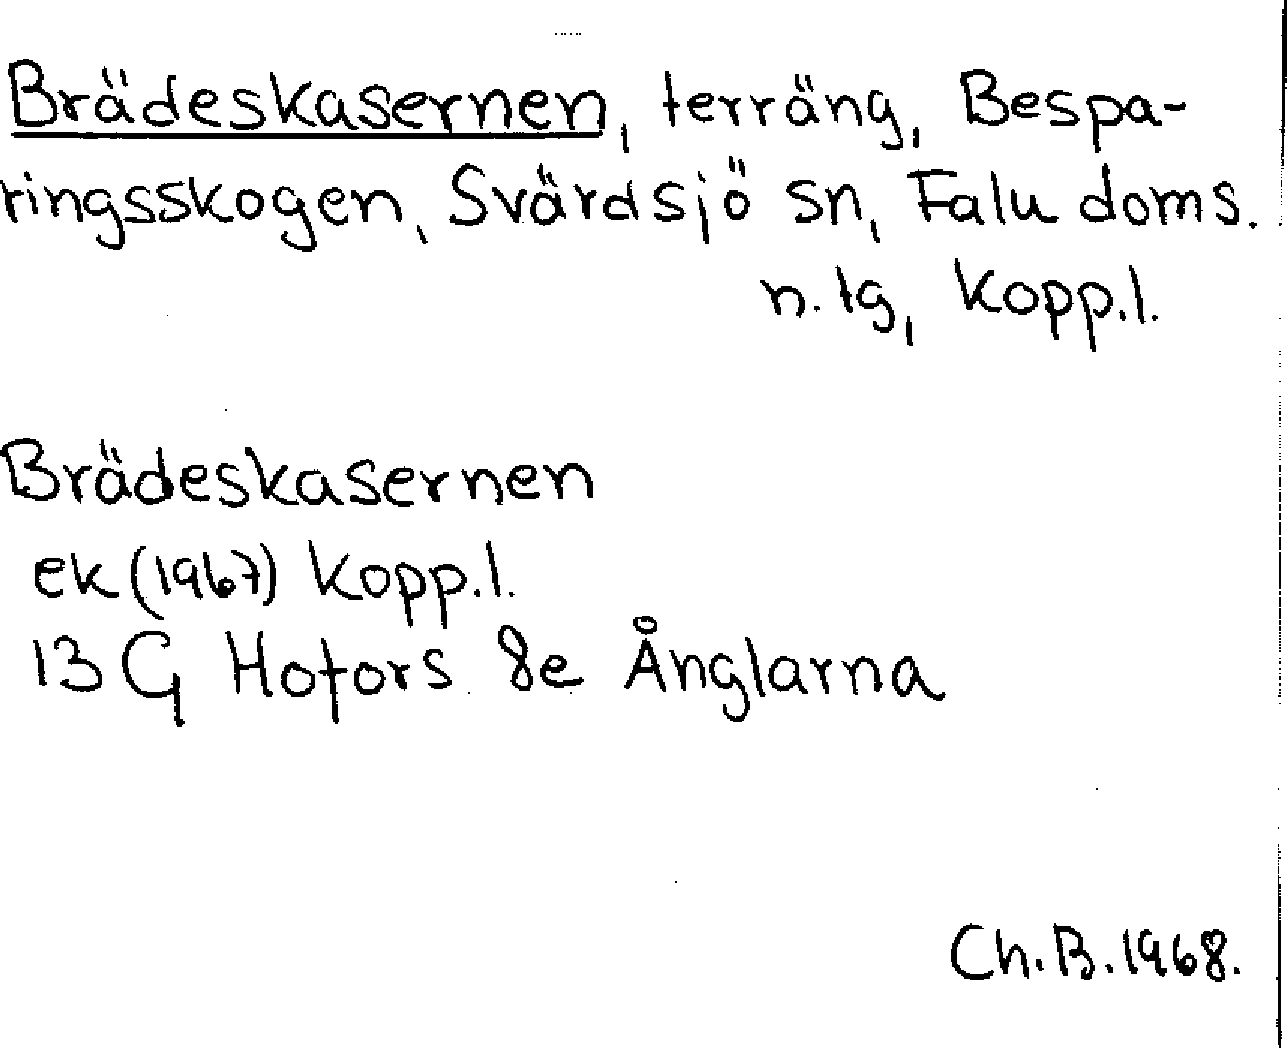 Brädeskasernen, terräng, Bespa-
ringsskogen, Svärdsjö sn, Falu doms.
n. tg, Kopp.l.
Brädeskasernen
ek (1967) Kopp.l.
13 G Hofors 8e Ånglarna
Ch.B.1968.